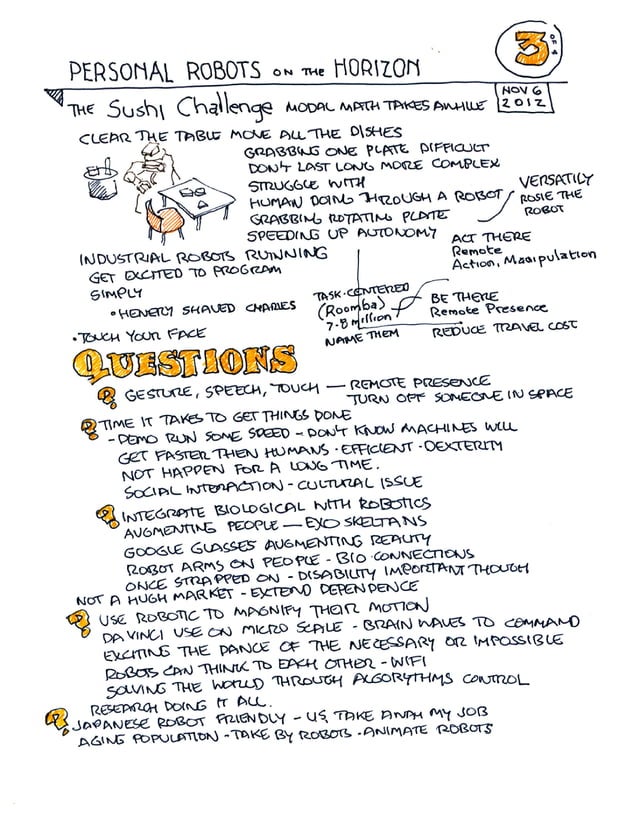 3 OF 4
PERSONAL ROBOTS ON THE HORIZON
NOV 6
2012
THE Sushi Challenge MODAL MATH TAKES AWHILE
CLEAR THE TABLE MOVE ALL THE DISHES
GRABBING ONE PLATE DIFFICULT
DON'T LAST LONG MORE COMPLEX
STRUGGLE WITH
HUMAN DOING THROUGH A ROBOT
GRABBING ROTATING PLATE
SPEEDING UP AUTONOMY
VERSATILY
ROSIE THE
ROBOT
INDUSTRIAL ROBOTS RUNNING
GET EXCITED TO PROGRAM
SIMPLY
• HENERY SHAVED CHARLES
• TOUCH YOUR FACE
ACT THERE
Remote
Action, Manipulation
TASK-CENTERED
(Roomba)
7-8 million
NAME THEM
BE THERE
Remote Presence
REDUCE TRAVEL COST
QUESTIONS
? GESTURE, SPEECH, TOUCH — REMOTE PRESENCE
TURN OFF SOMEONE IN SPACE
? TIME IT TAKES TO GET THINGS DONE
- DEMO RUN SOME SPEED - DON'T KNOW MACHINES WILL
GET FASTER THEN HUMANS · EFFICIENT · DEXTERITY
NOT HAPPEN FOR A LONG TIME.
SOCIAL INTERACTION - CULTURAL ISSUE
? INTEGRATE BIOLOGICAL WITH ROBOTICS
AUGMENTING PEOPLE — EXO SKELTANS
GOOGLE GLASSES AUGMENTING REALITY
ROBOT ARMS ON PEOPLE - BIO CONNECTIONS
ONCE STRAPPED ON - DISABILITY IMPORTANT THOUGH
NOT A HUGH MARKET - EXTEND DEPENDENCE
? USE ROBOTIC TO MAGNIFY THEIR MOTION
DAVINCI USE ON MICRO SCALE - BRAIN WAVES TO COMMAND
EXCITING THE DANCE OF THE NECESSARY OR IMPOSSIBLE
ROBOTS CAN THINK TO EACH OTHER - WIFI
SOLVING THE WORLD THROUGH ALGORYTHMS CONTROL
RESEARCH DOING IT ALL.
? JAPANESE ROBOT FRIENDLY - US TAKE AWAY MY JOB
AGING POPULATION - TAKE BY ROBOTS - ANIMATE ROBOTS